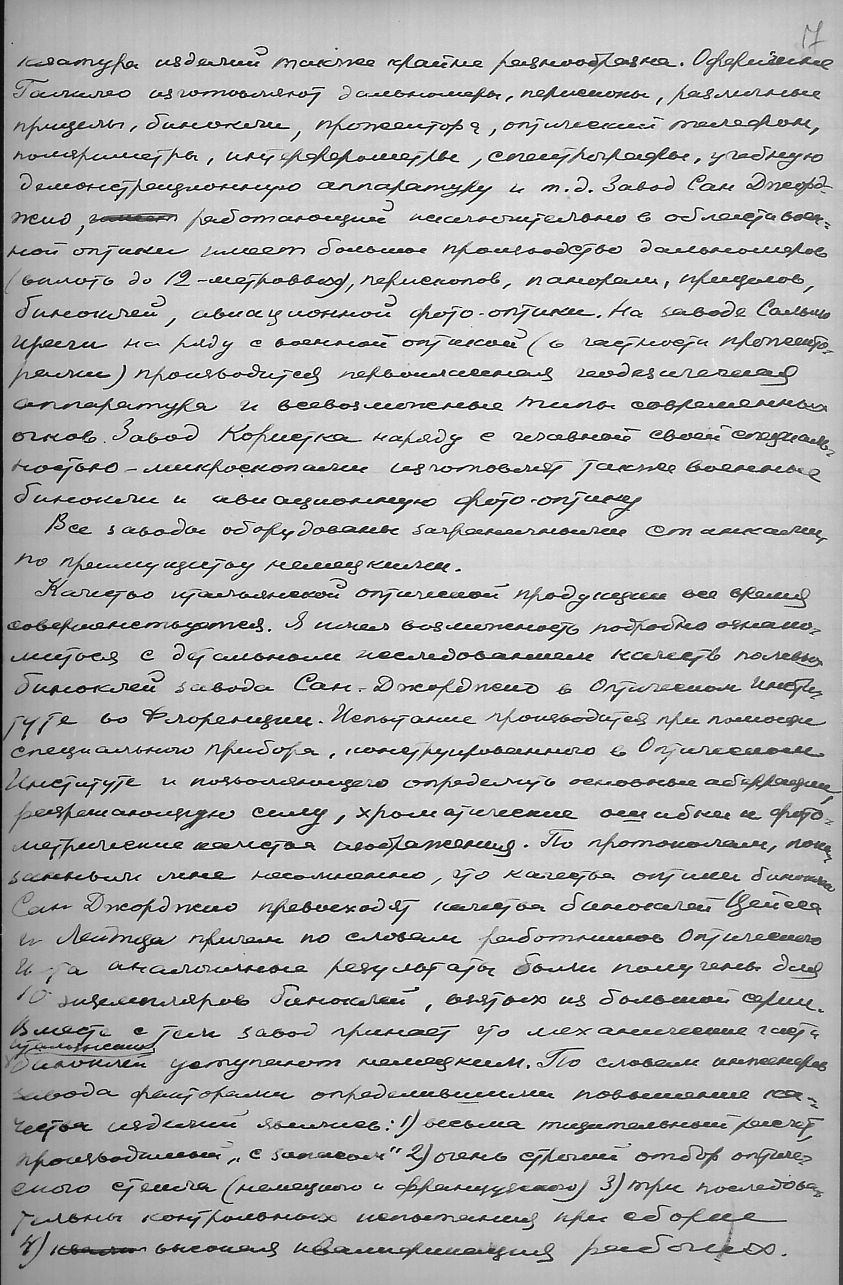 17
клатура изделий также крайне разнообразна. Оффичине
Галилео изготовляют дальномеры, перископы, различные
прицелы, бинокли, прожектора, оптический телефон,
поляриметры, интерферометры, спектрографы, учебную
демонстрационную аппаратуру и т.д. Завод Сан Джорд-
жио, работающий исключительно в области воен-
ной оптики имеет большое производство дальномеров
(вплоть до 12-метровых), перископов, панорам, прицелов,
биноклей, авиационной фото-оптики. На заводе Сальмо
на ряду с военной оптикой (в частности прожекто-
рами) производится первоклассная геодезическая
аппаратура и всевозможные типы современных
огнов. Завод Користка наряду с главной своей специаль-
ностью - микроскопами изготовляет также военные
бинокли и авиационную фото-оптику
Все заводы оборудованы заграничными станками,
по преимуществу немецкими.
Качество итальянской оптической продукции все время
совершенствуется. Я имел возможность подробно ознако-
миться с детальным исследованием качеств полевых
биноклей завода Сан-Джорджио в Оптическом Инсти-
туте во Флоренции. Испытание производится при помощи
специального прибора, конструированного в Оптическом
Институте и позволяющего определить основные аберрации,
разрешающую силу, хроматические ошибки и фото-
метрические качества изображения. По протоколам, пока-
занным мне несомненно, что качества оптики бинокля
Сан Джорджио превосходят качества биноклей Цейсса
и Лейтца причем по словам работников Оптического
И-та аналогичные результаты были получены для
10 экземпляров биноклей, взятых из большой серии.
Вместе с тем завод признает что механические части
итальянских
биноклей уступают немецким. По словам инженеров
завода факторами определившими повышение ка-
чества изделий явились: 1) весьма тщательный расчет,
производимый „с запасом" 2) очень строгий отбор оптиче-
ского стекла (немецкого и французского) 3) три последова-
тельных контрольных испытания при сборке
4) высокая квалификация рабочих.